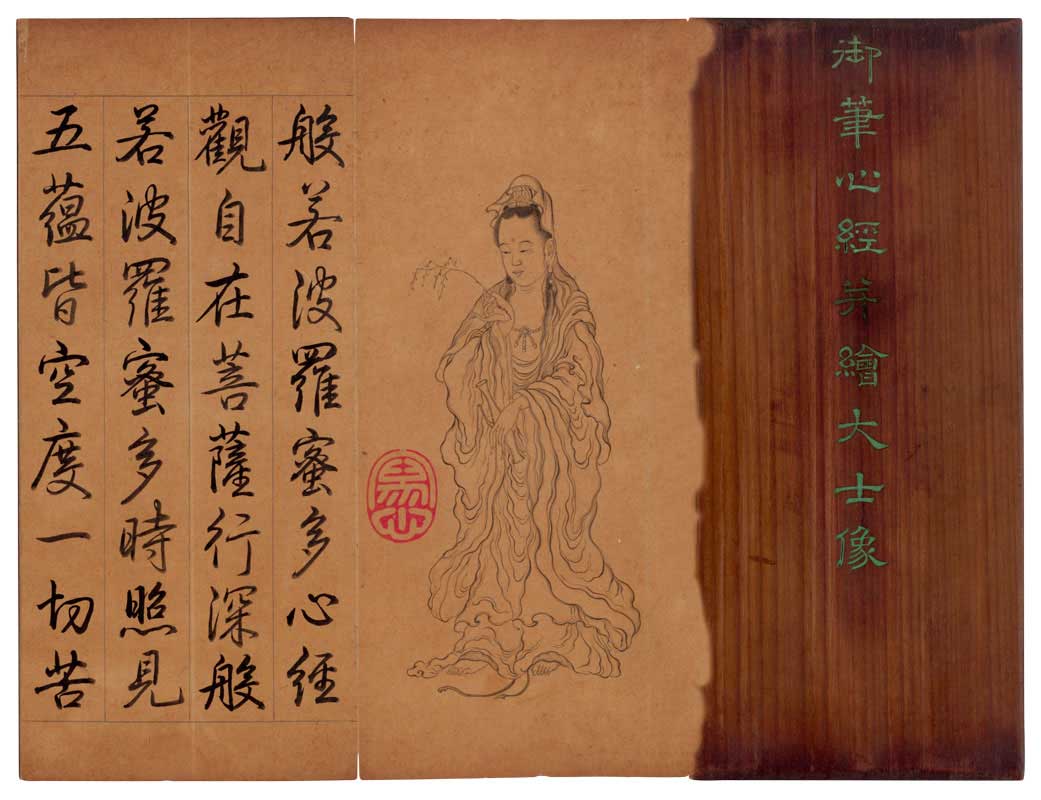 御筆心經並繪大士像
般若波羅蜜多心經
觀自在菩薩行深般
若波羅蜜多時照見
五蘊皆空度一切苦